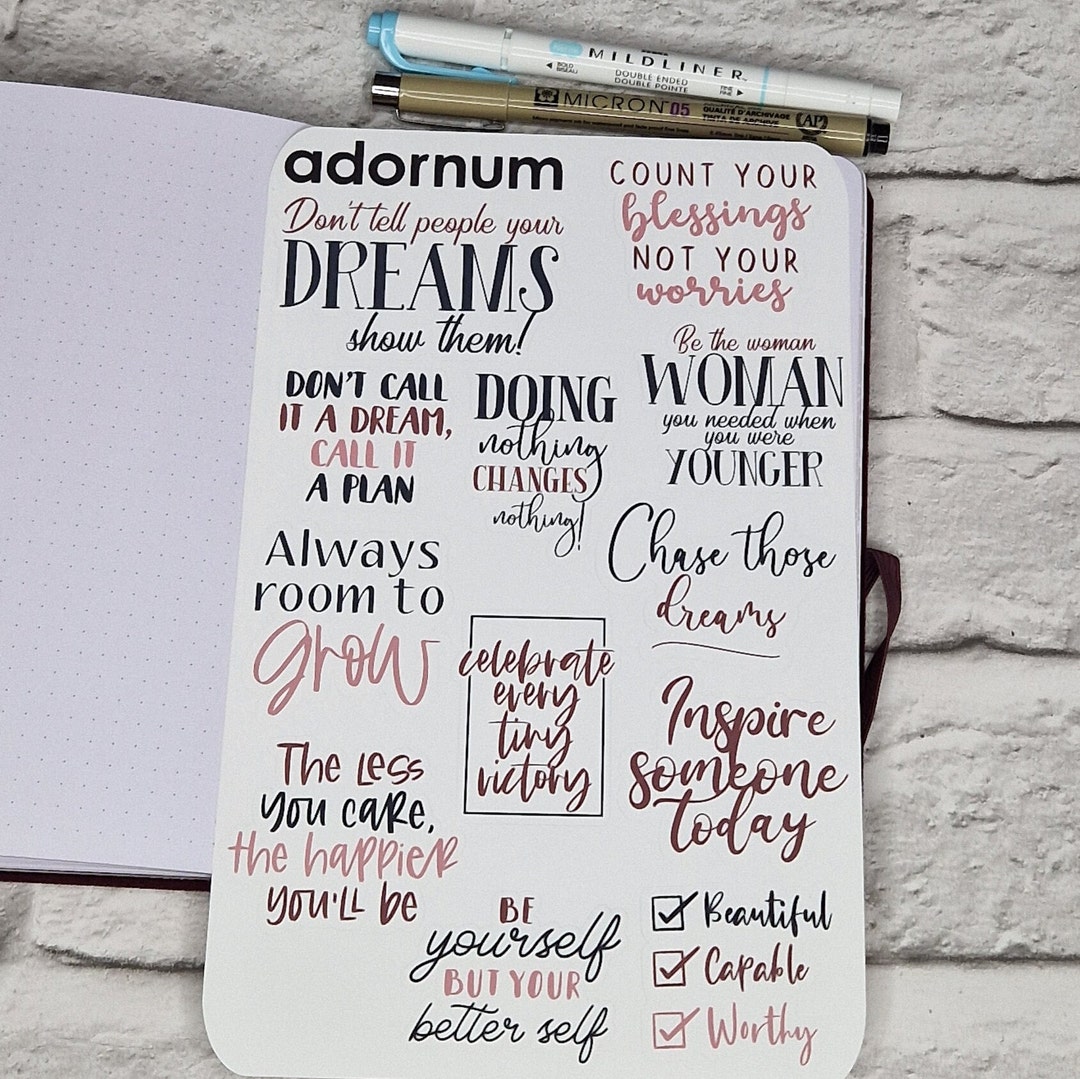 MILDLINER™
BOLD
BISEAU
DOUBLE ENDED
DOUBLE POINTE
FINE
FINE
MICRON® 05
QUALITÉ D'ARCHIVAGE
TINTA DE ARCHIVE
AP
adornum
Don't tell people your
DREAMS
show them!
COUNT YOUR
blessings
NOT YOUR
worries
Be the woman
WOMAN
you needed when
you were
YOUNGER
DON'T CALL
IT A DREAM,
CALL IT
A PLAN
DOING
nothing
CHANGES
nothing!
Chase those
dreams
Always
room to
grow
celebrate
every
tiny
victory
Inspire
someone
today
The Less
you care,
the happier
you'll be
BE
yourself
BUT YOUR
better self
Beautiful
Capable
Worthy